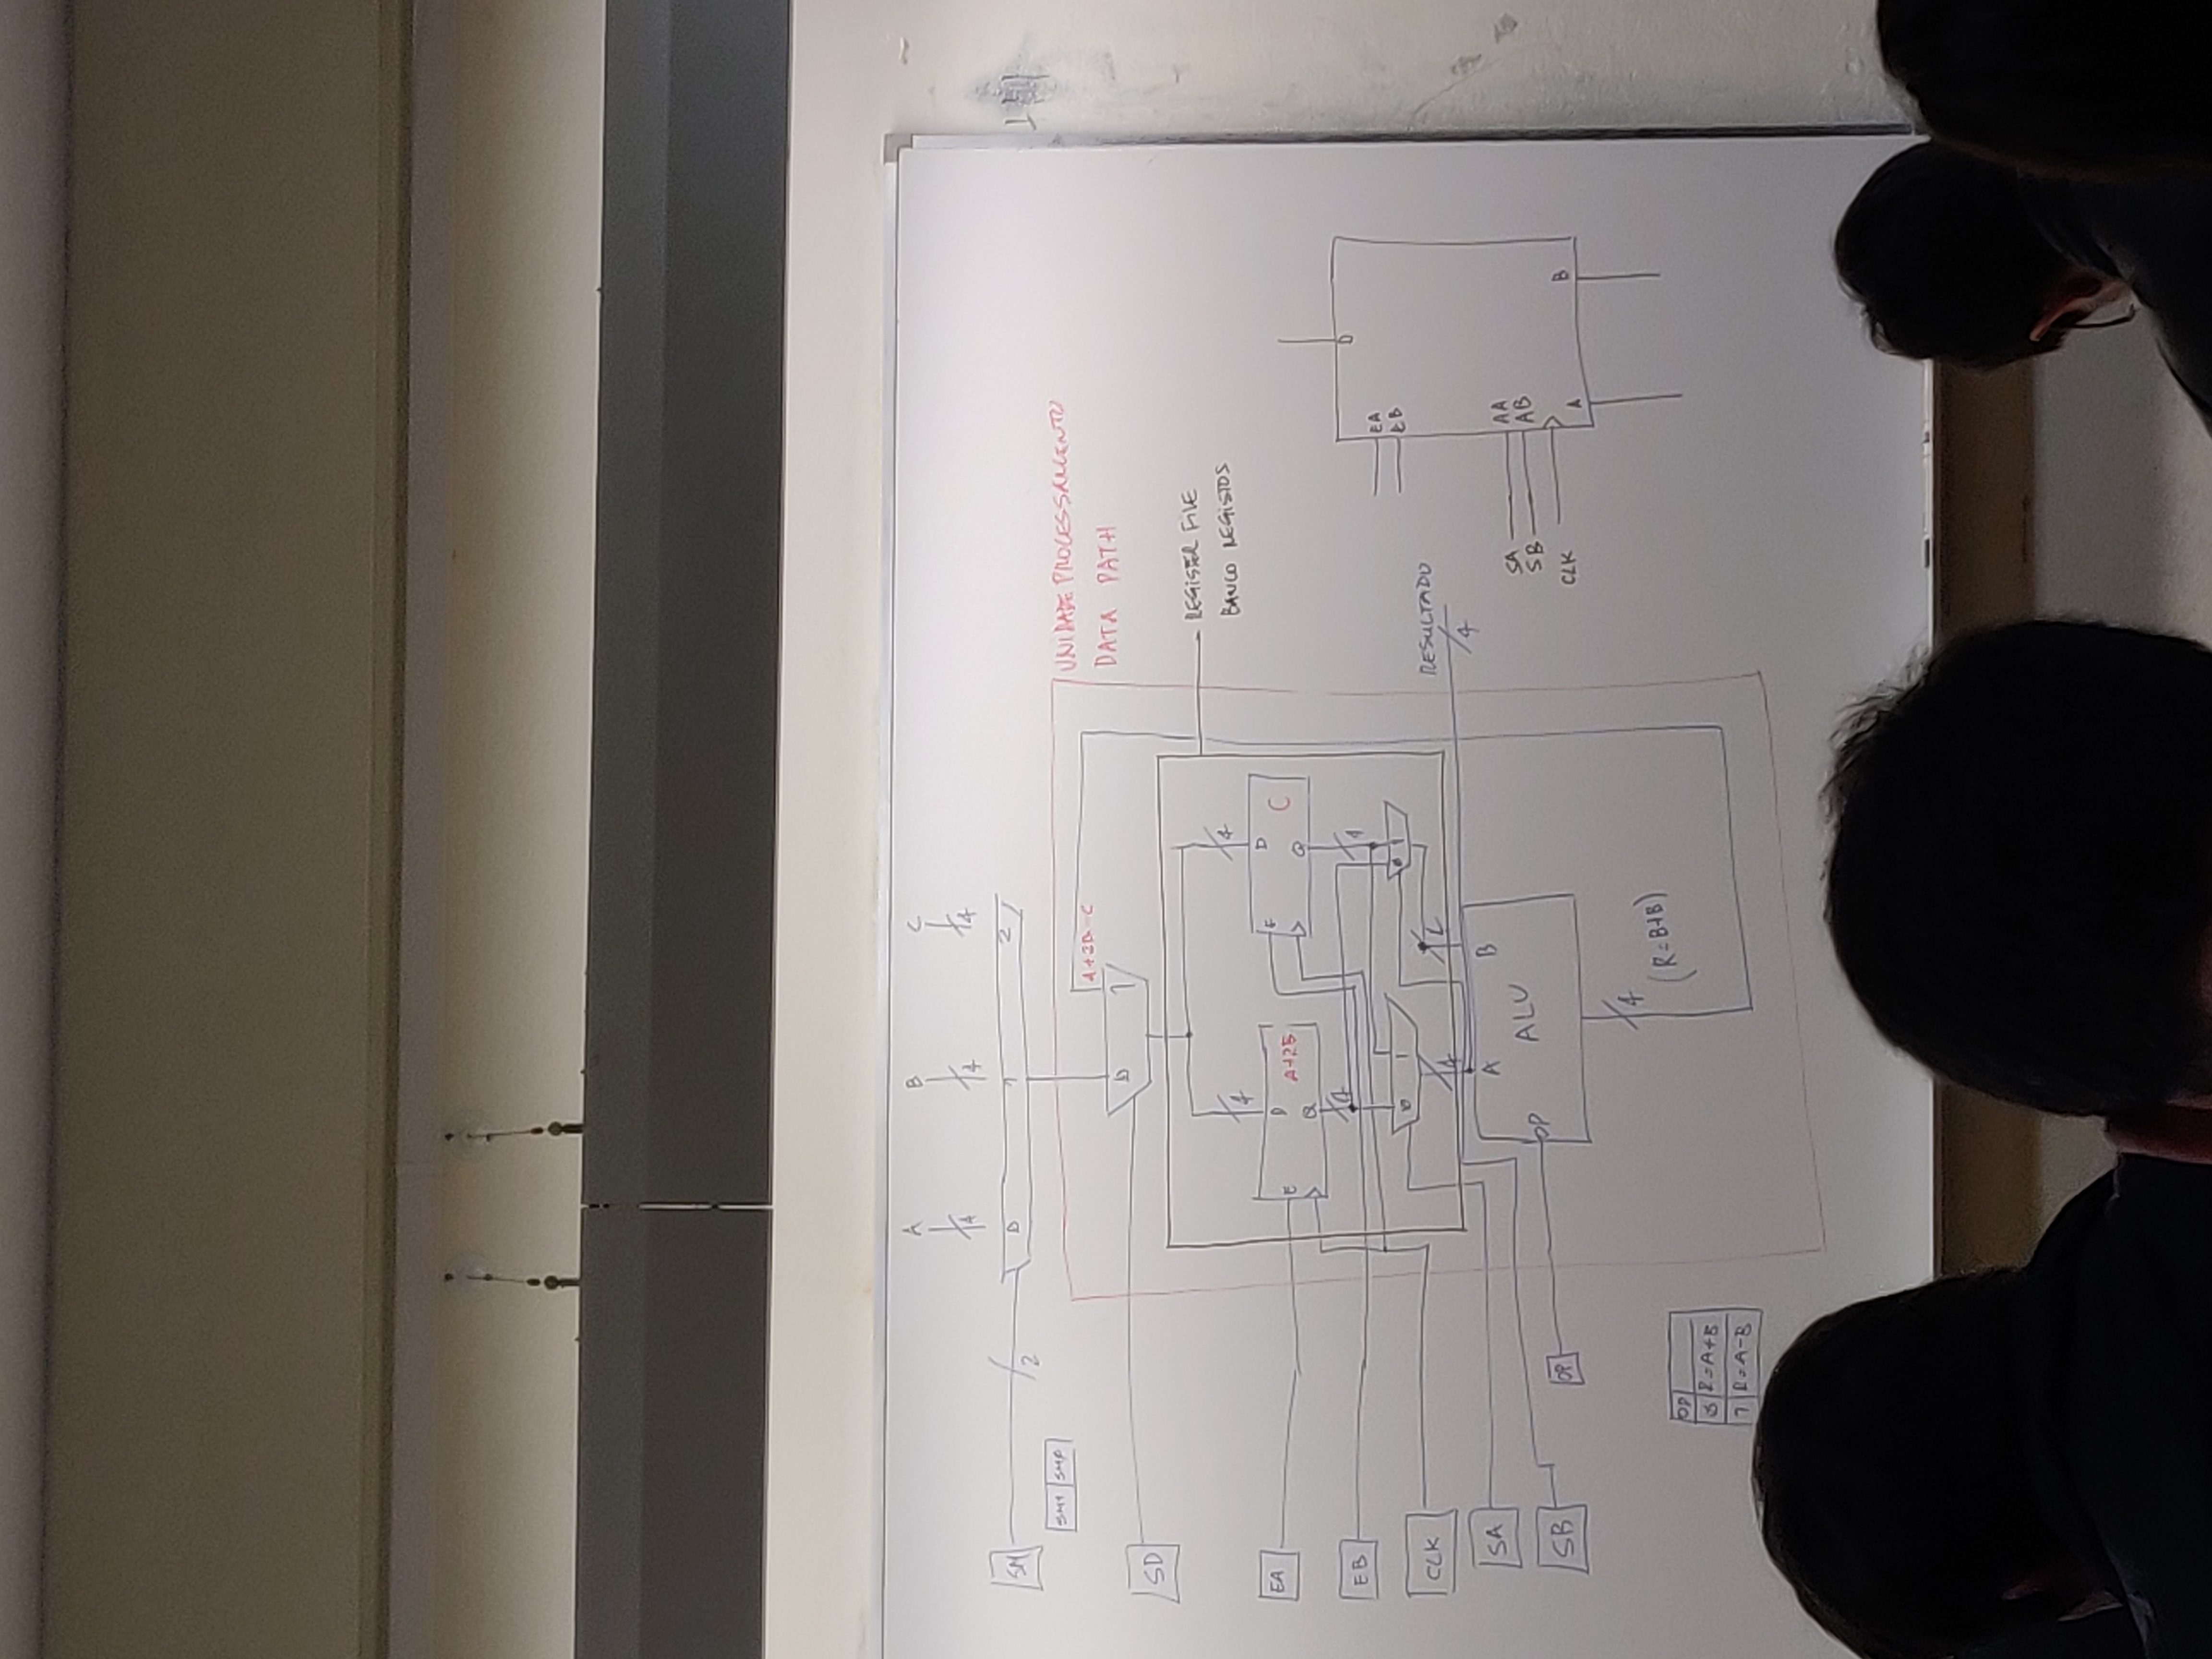 A B C
4 4 4
SM
2
0 1 2
SM1 SM0
UNIDADE PROCESSAMENTO
DATA PATH
A+2B-C
0 1
SD
REGISTER FILE
BANCO REGISTOS
4 4
EA
E D A+2B
Q
E D C
Q
4 4
EB
0 1
0 1
CLK
4
RESULTADO
4
SA
A B
ALU
OP
SB
OP
4
(R=B+B)
OP
0 R=A+B
1 R=A-B
D
EA
EB
SA AA
SB AB
CLK
A B